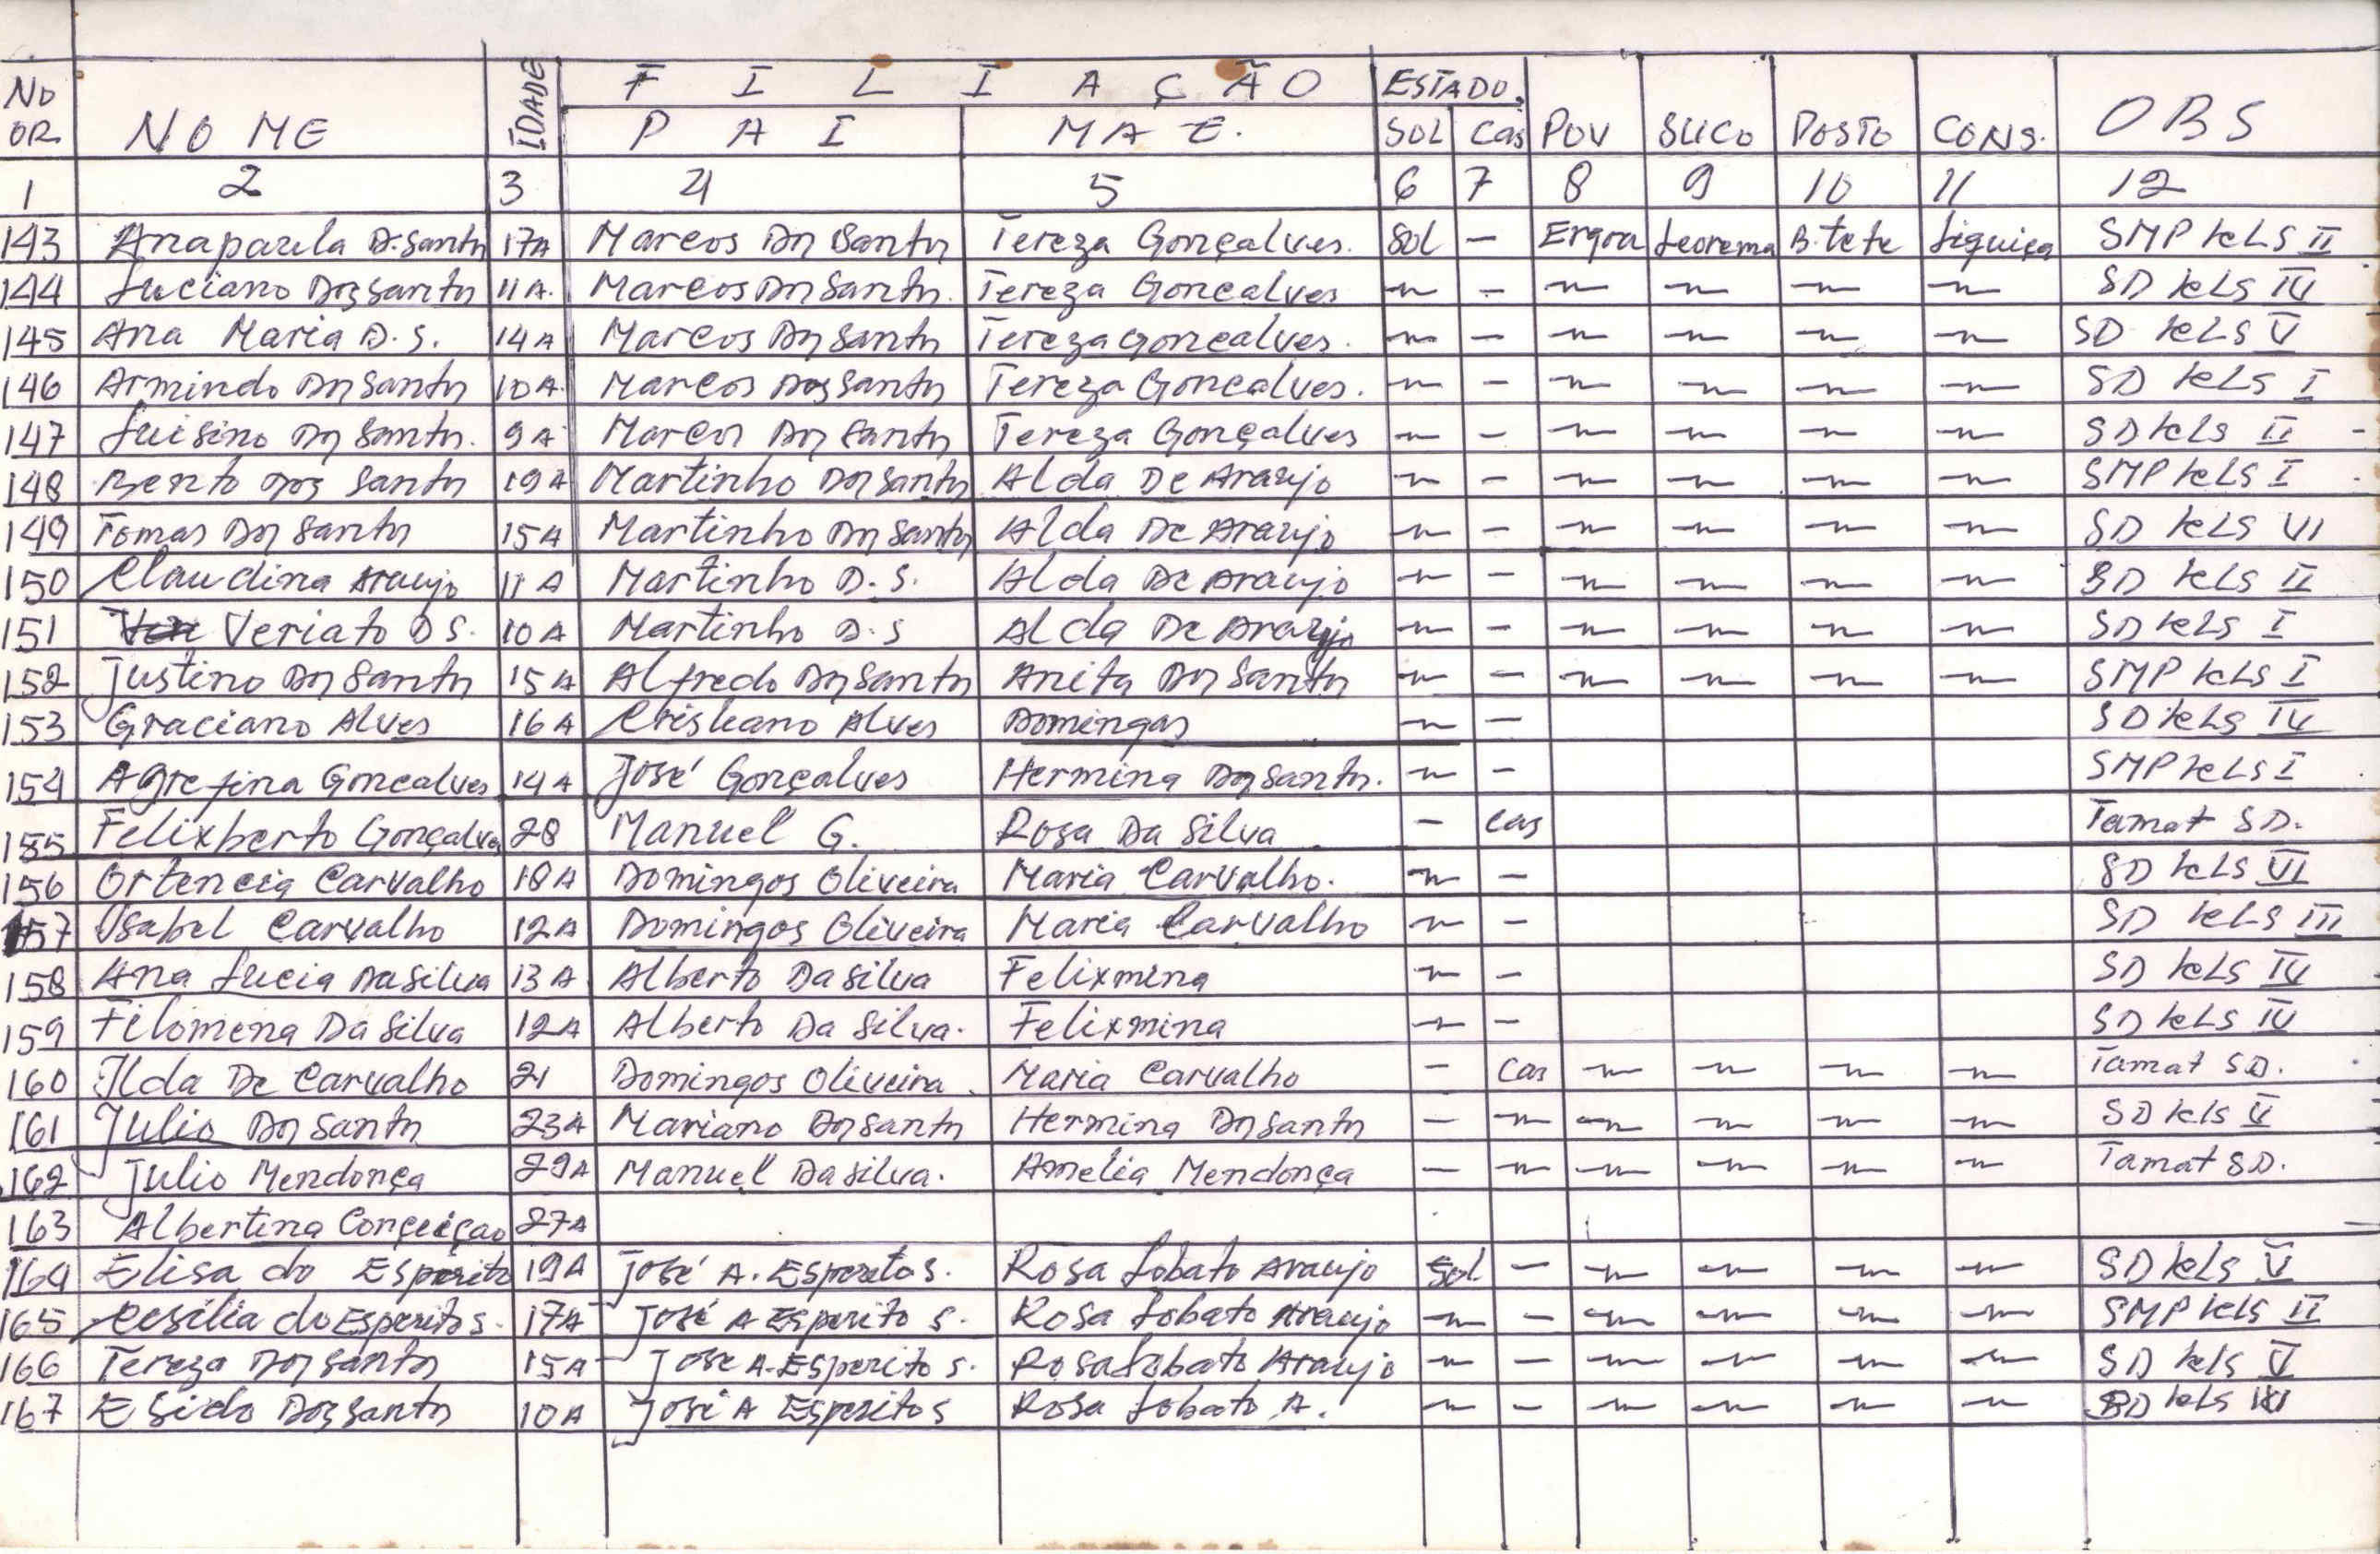 No OR NOME IDADE FILIAÇÃO ESTADO POV SUCO POSTO CONS. OBS
PAI MAE. SOL Cas
1 2 3 4 5 6 7 8 9 10 11 12
143 Anapaula D. Santos 17A Marcos Dos Santos Tereza Gonçalves. Sol - Ergoa Leorema B. tete Liquiça SMP kLS II
144 Luciano Dos Santos 11A. Marcos Dos Santos. Tereza Goncalves ~ - ~ ~ ~ ~ SD kLS IV
145 Ana Maria D. S. 14A Marcos Dos Santos Tereza Goncalves. ~ - ~ ~ ~ ~ SD kLS V
146 Armindo Dos Santos 10A Marcos Dos Santos Tereza Goncalves. ~ - ~ ~ ~ ~ SD kLS I
147 Luisino Dos Santos. 9A Marcos Dos Santos Tereza Gonçalves ~ - ~ ~ ~ ~ SD kLS II
148 Bento Dos Santos 19A Martinho Dos Santos Alda De Araujo ~ - ~ ~ ~ ~ SMP kLS I
149 Tomas Dos Santos 15A Martinho Dos Santos Alda De Araujo ~ - ~ ~ ~ ~ SD kLS VI
150 Claudina Araujo 11A Martinho D. S. Alda De Araujo ~ - ~ ~ ~ ~ SD kLS II
151 Veriato D S. 10A Martinho D. S Alda De Araujo ~ - ~ ~ ~ ~ SD kLS I
152 Justino Dos Santos 15A Alfredo Dos Santos Anita Dos Santos ~ - ~ ~ ~ ~ SMP kLS I
153 Graciano Alves 16A Cristeano Alves Domingas ~ - SD kLS IV
154 Agrefina Goncalves 14A José Gonçalves Hermina Dos Santos. ~ - SMP kLS I
155 Felixberto Gonçalves 28 Manuel G. Rosa Da Silva - Cas Tamat SD.
156 Ortencia Carvalho 18A Domingos Oliveira Maria Carvalho. ~ - SD kLS VI
157 Isabel Carvalho 12A Domingos Oliveira Maria Carvalho ~ - SD kLS III
158 Ana Lucia Da Silva 13A Alberto Da Silva Felixmina ~ - SD kLS IV
159 Filomena Da Silva 12A Alberto Da Silva. Felixmina ~ - SD kLS IV
160 Ilda De Carvalho 21 Domingos Oliveira Maria Carvalho - Cas ~ ~ ~ ~ Tamat SD.
161 Julio Dos Santos 23A Mariano Dos Santos Hermina Dos Santos - ~ ~ ~ ~ ~ SD kLS V
162 Julio Mendonça 29A Manuel Da Silva. Amelia Mendonça - ~ ~ ~ ~ ~ Tamat SD.
163 Albertina Conçeiçao 27A
164 Elisa do Esperito 19A José A. Esperito S. Rosa Lobato Araujo Sol - ~ ~ ~ ~ SD kLS V
165 Cesilia do Esperito S. 17A José A Esperito S. Rosa Lobato Araujo ~ - ~ ~ ~ ~ SMP kLS II
166 Tereza Dos Santos 15A José A. Esperito S. Rosa Lobato Araujo ~ - ~ ~ ~ ~ SD kLS V
167 Esido Dos Santos 10A José A Esperito S Rosa Lobato A. ~ - ~ ~ ~ ~ SD kLS